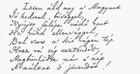 Isten áldd meg a Magyart
Jó kedvvel, bőséggel,
Nyújts feléje védő kart
Ha küzd ellenséggel;
Bal sors a kit régen tép,
Hozz rá víg esztendőt,
Megbűnhődte már e nép
A multat s jövendőt!